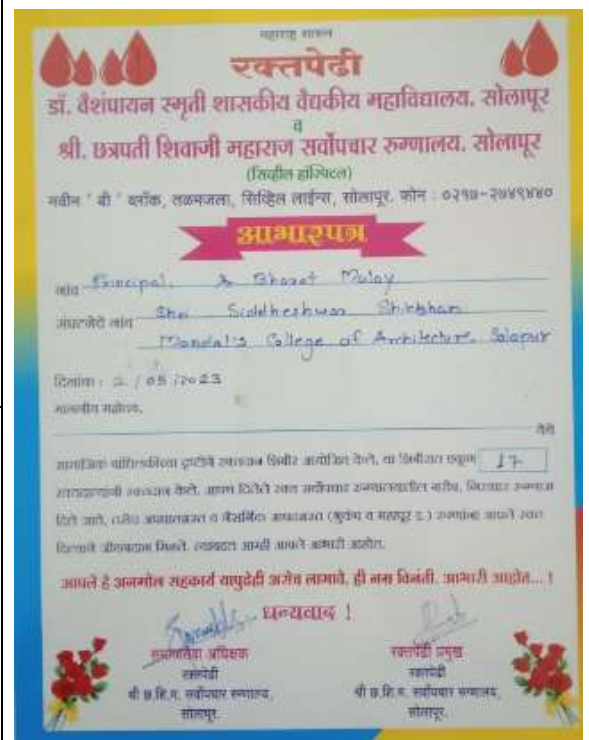 महाराष्ट्र शासन
रक्तपेढी
डॉ. वैशंपायन स्मृती शासकीय वैद्यकीय महाविद्यालय, सोलापूर
व
श्री. छत्रपती शिवाजी महाराज सर्वोपचार रुग्णालय, सोलापूर
(सिव्हील हॉस्पिटल)
नवीन ' बी ' ब्लॉक, तळमजला, सिव्हिल लाईन्स, सोलापूर. फोन : ०२१७-२७४९४४०
आभारपत्र
नांव Principal, Bharat Mulay
संघटनेचे नांव Shri Siddheshwar Shikshan
Mandal's College of Architecture, Solapur
दिनांक : 2 / 05 / 2023
माननीय महोदय,
येथे
सामाजिक बांधिलकीच्या दृष्टीने रक्तदान शिबीर आयोजित केले, या शिबीरात एकूण 17
रक्तदात्यांनी रक्तदान केले. आपण दिलेले रक्त सर्वोपचार रुग्णालयातील गरीब, निराधार रुग्णास
दिले जाते, तसेच अपघातग्रस्त व नैसर्गिक आपदग्रस्त (भुकंप व महापूर इ.) रुग्णांना आपले रक्त
दिल्याने जीवनदान मिळते. त्याबद्दल आम्ही आपले आभारी आहोत.
आपले हे अनमोल सहकार्य यापुढेही असेच लाभावे, ही नम्र विनंती, आभारी आहोत... !
धन्यवाद !
समाजसेवा अधिक्षक
रक्तपेढी
श्री छ.शि.म. सर्वोपचार रुग्णालय,
सोलापूर.
रक्तपेढी प्रमुख
रक्तपेढी
श्री छ.शि.म. सर्वोपचार रुग्णालय,
सोलापूर.